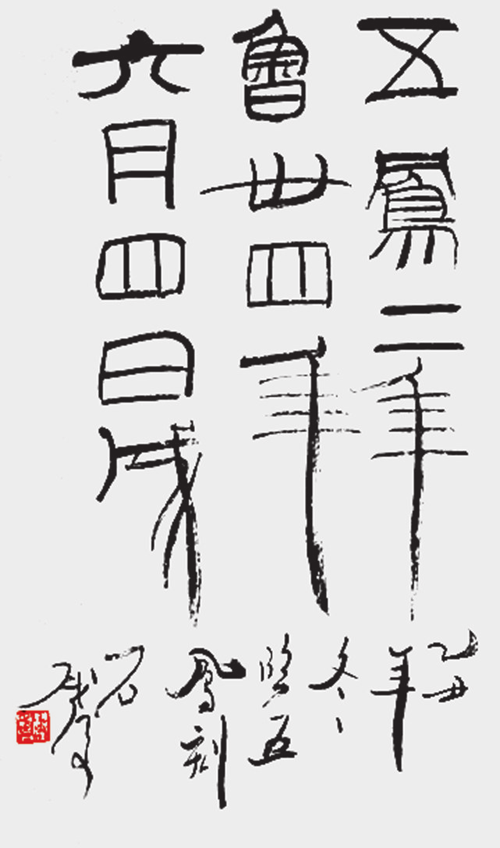 五鳳二年
魯卅四年
六月四日成
乙丑
年
冬
臨五
鳳刻
石